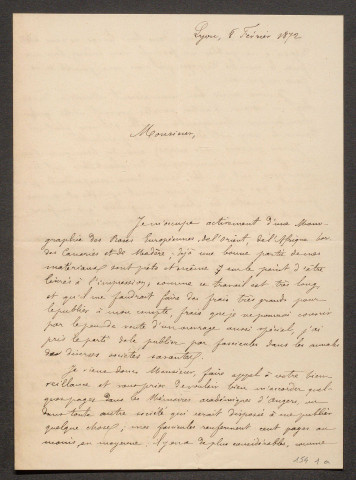 Lyon, 6 Février 1872
Monsieur,
Je m'occupe activement d'une Mono-
graphie des Races Européennes, de l'Orient, de l'Afrique bor.
des Canaries et de Madère, déjà une bonne partie de mes
matériaux sont prêts et même sur le point d'être
livrés à l'impression, comme ce travail est très long
et qu'il me faudrait faire des frais très grands pour
le publier à mon compte, frais que je ne pourrai couvrir
par le peu de vente d'un ouvrage aussi spécial, j'ai
pris le parti de le publier par fascicules dans les annales
des diverses sociétés savantes.
Je viens donc Monsieur, faire appel à votre bien-
veillance et vous prier de vouloir bien m'accorder quel-
ques pages dans les Mémoires académiques d'Angers ou
dans toute autre société qui serait disposée à me publier
quelque chose; mes fascicules renferment cent pages au
moins en moyenne, il y en a de plus considérables, comme